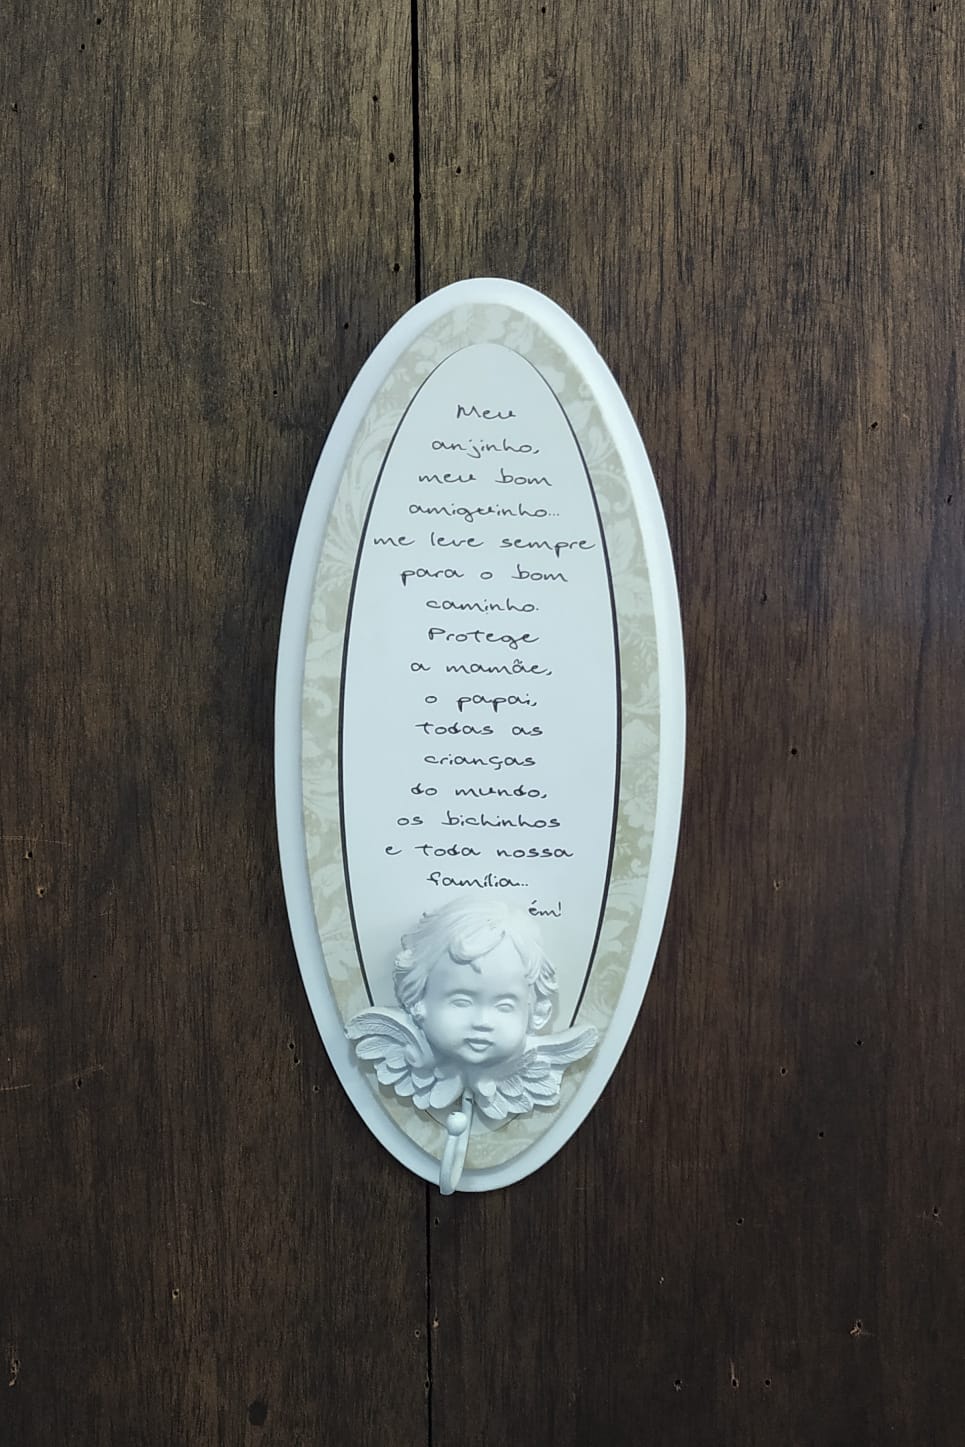 Meu
anjinho,
meu bom
amiguinho...
me leve sempre
para o bom
caminho.
Protege
a mamãe,
o papai,
todas as
crianças
do mundo,
os bichinhos
e toda nossa
família...
ém!